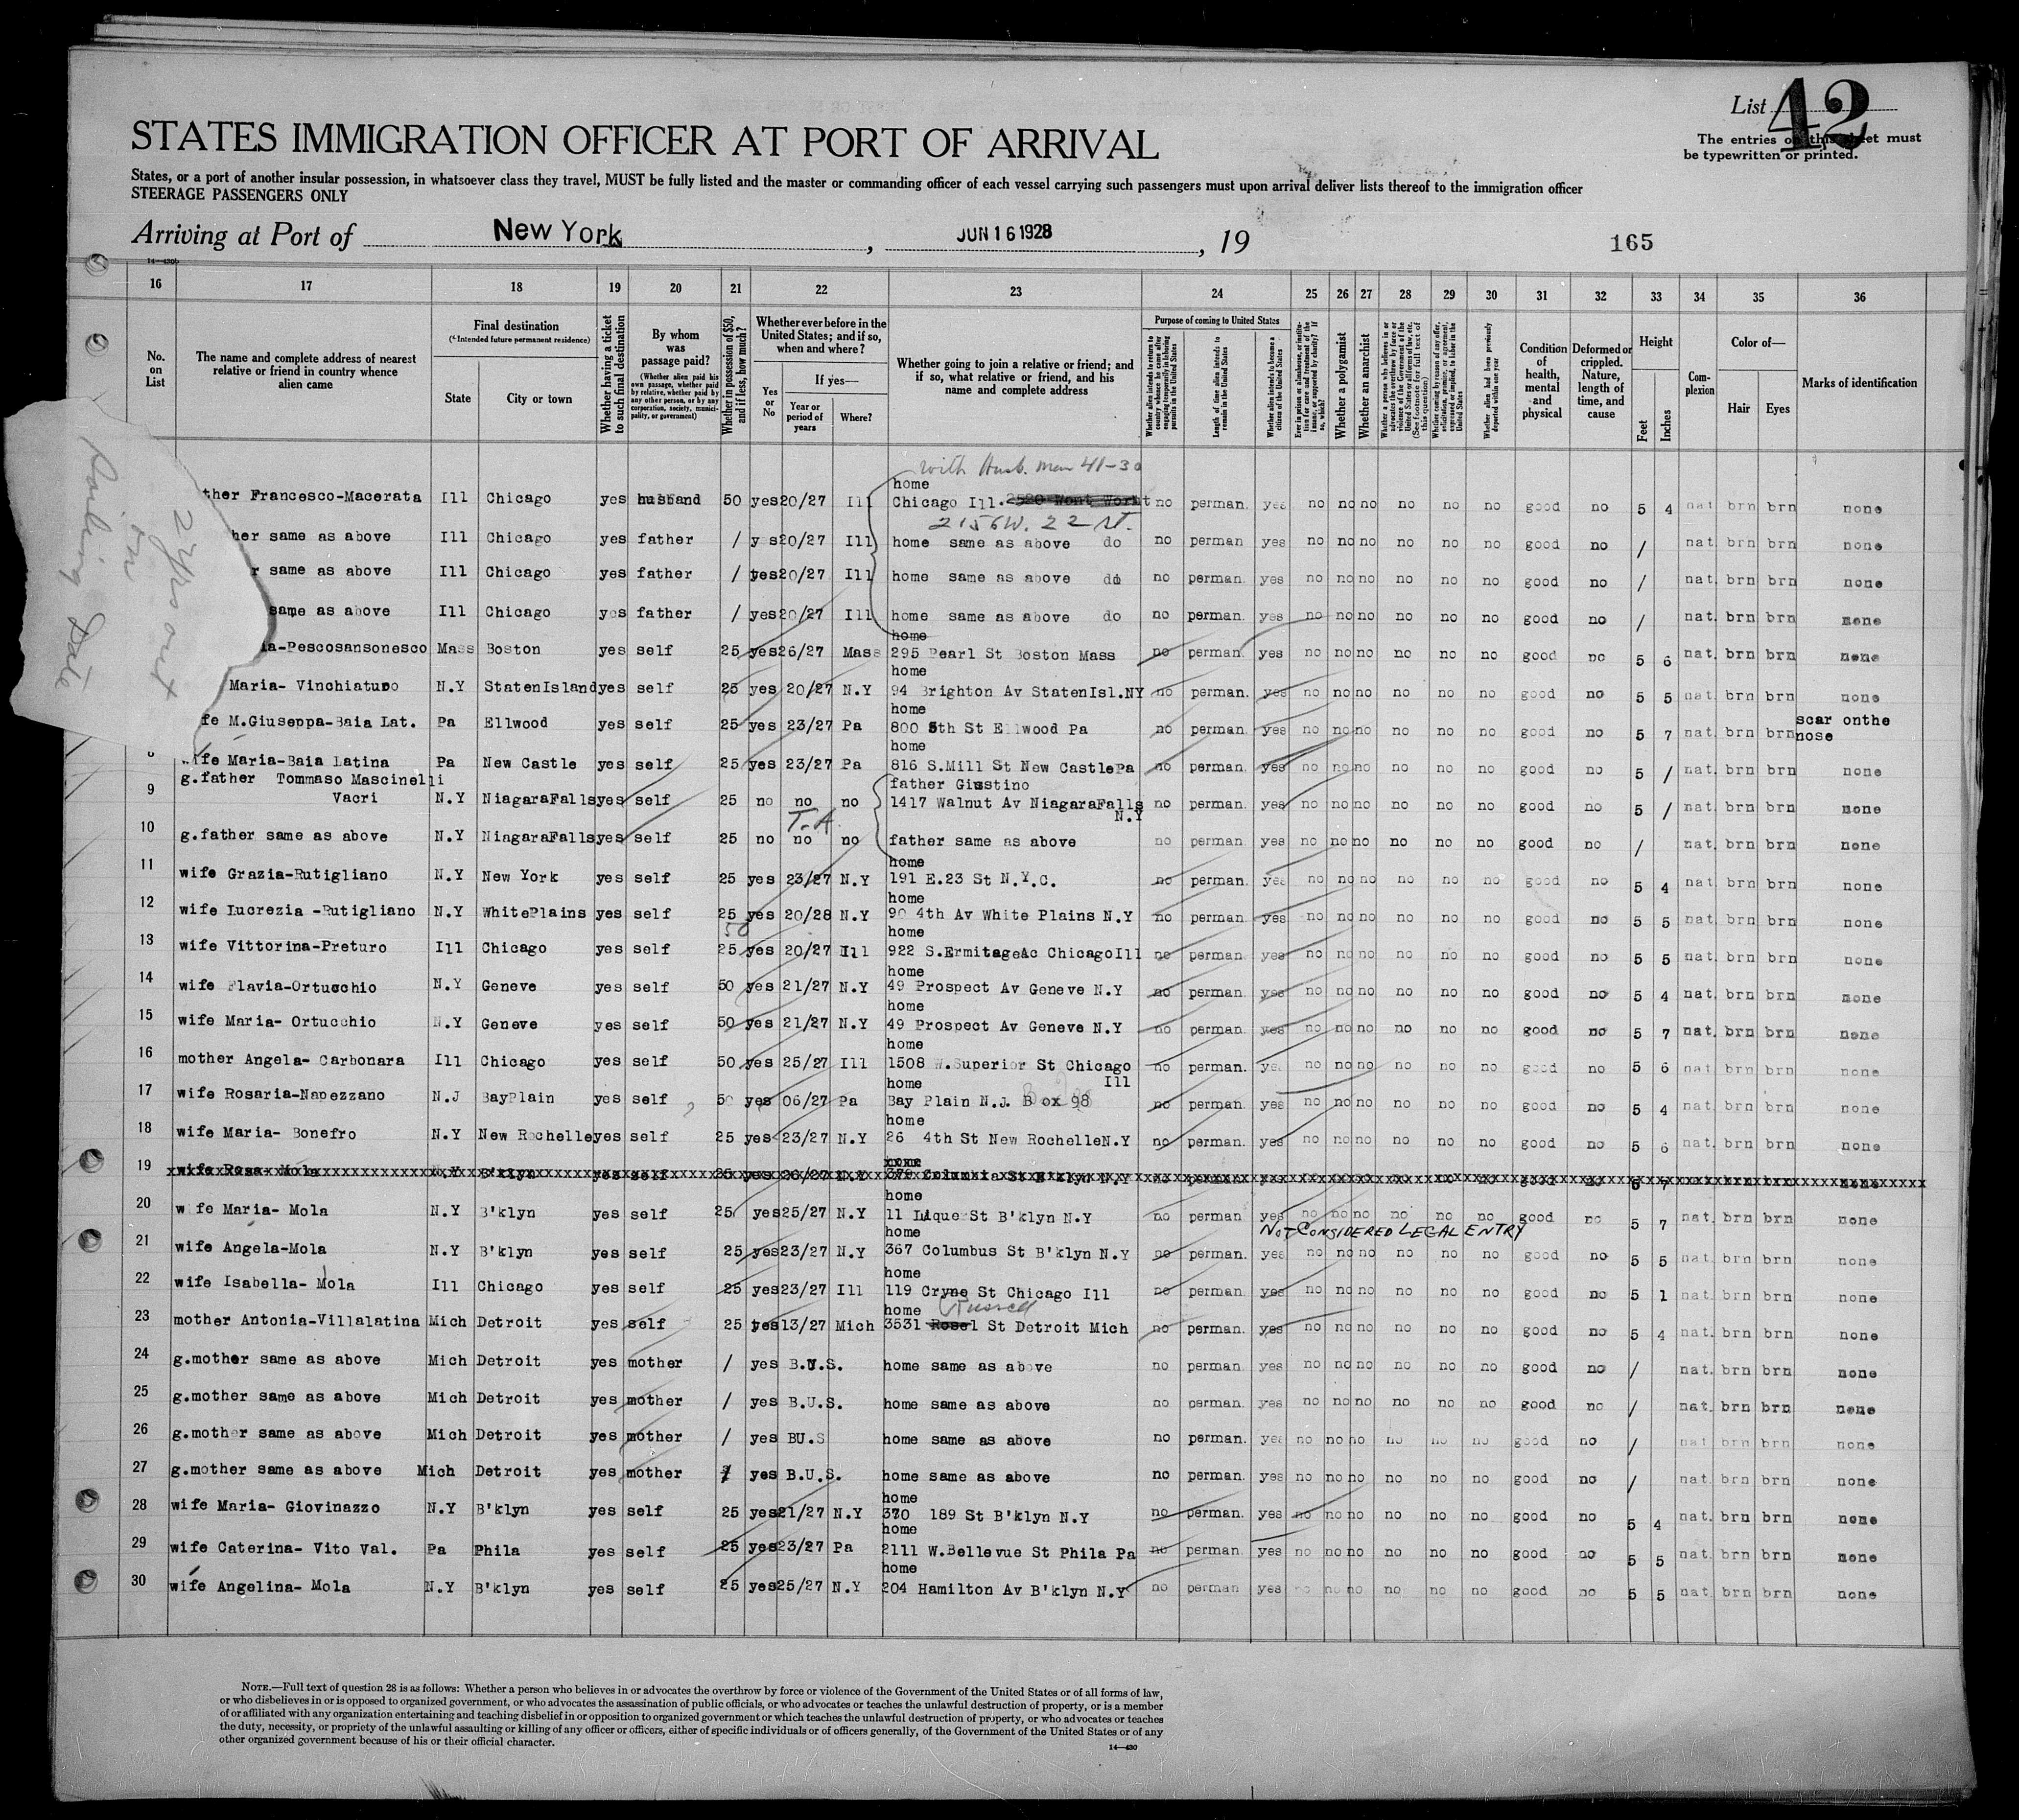 List 42
The entries on this sheet must
be typewritten or printed.
STATES IMMIGRATION OFFICER AT PORT OF ARRIVAL
States, or a port of another insular possession, in whatsoever class they travel, MUST be fully listed and the master or commanding officer of each vessel carrying such passengers must upon arrival deliver lists thereof to the immigration officer
STEERAGE PASSENGERS ONLY
Arriving at Port of New York , JUN 16 1928 , 19
165
14—430b
16 17 18 19 20 21 22 23 24 25 26 27 28 29 30 31 32 33 34 35 36
No. on List
The name and complete address of nearest relative or friend in country whence alien came
Final destination
(*Intended future permanent residence)
State
City or town
Whether having a ticket to such final destination
By whom was passage paid?
(Whether alien paid his own passage, whether paid by relative, whether paid by any other person, or by any corporation, society, municipality, or government)
Whether in possession of $50, and if less, how much?
Whether ever before in the United States; and if so, when and where?
Yes or No
If yes—
Year or period of years
Where?
Whether going to join a relative or friend; and if so, what relative or friend, and his name and complete address
Purpose of coming to United States
Whether alien intends to return to country whence he came after engaging temporarily in laboring pursuits in the United States
Length of time alien intends to remain in the United States
Whether alien intends to become a citizen of the United States
Ever in prison or almshouse, or institution for care and treatment of the insane, or supported by charity? If so, which?
Whether a polygamist
Whether an anarchist
Whether a person who believes in or advocates the overthrow by force or violence of the Government of the United States or all forms of law, etc. (See footnote for full text of this question)
Whether coming by reason of any offer, solicitation, promise, or agreement, expressed or implied, to labor in the United States
Whether alien had been previously deported within one year
Condition of health, mental and physical
Deformed or crippled. Nature, length of time, and cause
Height
Feet
Inches
Complexion
Color of—
Hair
Eyes
Marks of identification
2 yrs out
on
Sailing Date
with Husb. man 41-30
home
ther Francesco-Macerata Ill Chicago yes husband 50 yes 20/27 Ill Chicago Ill. no perman. yes no no no no no no good no 5 4 nat brn brn none
2156 W. 22 St.
her same as above Ill Chicago yes father / yes 20/27 Ill home same as above do no perman yes no no no no no no good no / nat. brn brn none
r same as above Ill Chicago yes father / yes 20/27 Ill home same as above do no perman. yes no no no no no no good no / nat. brn brn none
same as above Ill Chicago yes father / yes 20/27 Ill home same as above do no perman. yes no no no no no no good no / nat. brn brn none
home
ia-Pescosansonesco Mass Boston yes self 25 yes 26/27 Mass 295 Pearl St Boston Mass no perman. yes no no no no no no good no 5 6 nat. brn brn none
home
Maria- Vinchiaturo N.Y StatenIsland yes self 25 yes 20/27 N.Y 94 Brighton Av StatenIsl.NY no perman. yes no no no no no no good no 5 5 nat. brn brn none
home
fe M.Giuseppa-Baia Lat. Pa Ellwood yes self 25 yes 23/27 Pa 800 5th St Ellwood Pa no perman. yes no no no no no no good no 5 7 nat. brn brn scar onthe nose
home
8 wife Maria-Baia Latina Pa New Castle yes self 25 yes 23/27 Pa 816 S.Mill St New CastlePa no perman. yes no no no no no no good no 5 / nat. brn brn none
g.father Tommaso Mascinelli father Giustino
9 Vacri N.Y NiagaraFalls yes self 25 no no no 1417 Walnut Av NiagaraFalls N.Y no perman. yes no no no no no no good no 5 / nat. brn brn none
T.A.
10 g.father same as above N.Y NiagaraFalls yes self 25 no no no father same as above no perman. yes no no no no no no good no / nat. brn brn none
home
11 wife Grazia-Rutigliano N.Y New York yes self 25 yes 23/27 N.Y 191 E.23 St N.Y.C. no perman. yes no no no no no no good no 5 4 nat. brn brn none
home
12 wife Lucrezia -Rutigliano N.Y WhitePlains yes self 25 yes 20/28 N.Y 90 4th Av White Plains N.Y no perman. yes no no no no no no good no 5 5 nat. brn brn none
50
home
13 wife Vittorina-Preturo Ill Chicago yes self 25 yes 20/27 Ill 922 S.ErmitageAc ChicagoIll no perman. yes no no no no no no good no 5 5 nat. brn brn none
home
14 wife Flavia-Ortucchio N.Y Geneve yes self 50 yes 21/27 N.Y 49 Prospect Av Geneve N.Y no perman. yes no no no no no no good no 5 4 nat. brn brn none
home
15 wife Maria- Ortucchio N.Y Geneve yes self 50 yes 21/27 N.Y 49 Prospect Av Geneve N.Y no perman. yes no no no no no no good no 5 7 nat. brn brn none
home
16 mother Angela- Carbonara Ill Chicago yes self 50 yes 25/27 Ill 1508 W.Superior St Chicago Ill no perman. yes no no no no no no good no 5 6 nat brn brn none
home
17 wife Rosaria-Napezzano N.J BayPlain yes self 50 yes 06/27 Pa Bay Plain N.J. Box 98 no perman. yes no no no no no no good no 5 4 nat. brn brn none
home
18 wife Maria- Bonefro N.Y New Rochelle yes self 25 yes 23/27 N.Y 26 4th St New RochelleN.Y no perman. yes no no no no no no good no 5 6 nat. brn brn none
home
19 wife Rosa- Mola N.Y B'klyn yes self 25 yes 26/27 N.Y 379 Columbia St B'klyn N.Y no perman. yes no no no no no no good no 5 7 nat brn brn none
home
20 wife Maria- Mola N.Y B'klyn yes self 25 yes 25/27 N.Y 11 Lique St B'klyn N.Y no perman yes no no no no no no good no 5 7 nat. brn brn none
NOT CONSIDERED LEGAL ENTRY
home
21 wife Angela-Mola N.Y B'klyn yes self 25 yes 23/27 N.Y 367 Columbus St B'klyn N.Y no perman. yes no no no no no no good no 5 5 nat. brn brn none
home
22 wife Isabella- Mola Ill Chicago yes self 25 yes 23/27 Ill 119 Cryne St Chicago Ill no perman. yes no no no no no no good no 5 1 nat. brn brn none
home Russell
23 mother Antonia-Villalatina Mich Detroit yes self 25 yes 13/27 Mich 3531 Rosel St Detroit Mich no perman. yes no no no no no no good no 5 4 nat. brn brn none
24 g.mother same as above Mich Detroit yes mother / yes B.U.S. home same as above no perman. yes no no no no no no good no / nat. brn brn none
25 g.mother same as above Mich Detroit yes mother / yes B.U.S. home same as above no perman. yes no no no no no no good no / nat. brn brn none
26 g.mother same as above Mich Detroit yes mother / yes BU.S home same as above no perman. yes no no no no no no good no / nat brn brn none
27 g.mother same as above Mich Detroit yes mother / yes B.U.S. home same as above no perman. yes no no no no no no good no / nat. brn brn none
home
28 wife Maria- Giovinazzo N.Y B'klyn yes self 25 yes 21/27 N.Y 370 189 St B'klyn N.Y no perman. yes no no no no no no good no 5 4 nat. brn brn none
home
29 wife Caterina- Vito Val. Pa Phila yes self 25 yes 23/27 Pa 2111 W.Bellevue St Phila Pa no perman. yes no no no no no no good no 5 5 nat. brn brn none
home
30 wife Angelina- Mola N.Y B'klyn yes self 25 yes 25/27 N.Y 204 Hamilton Av B'klyn N.Y no perman yes no no no no no no good no 5 5 nat. brn brn none
NOTE.—Full text of question 28 is as follows: Whether a person who believes in or advocates the overthrow by force or violence of the Government of the United States or of all forms of law,
or who disbelieves in or is opposed to organized government, or who advocates the assassination of public officials, or who advocates or teaches the unlawful destruction of property, or is a member
of or affiliated with any organization entertaining and teaching disbelief in or opposition to organized government or which teaches the unlawful destruction of property, or who advocates or teaches
the duty, necessity, or propriety of the unlawful assaulting or killing of any officer or officers, either of specific individuals or of officers generally, of the Government of the United States or of any
other organized government because of his or their official character.
14—430